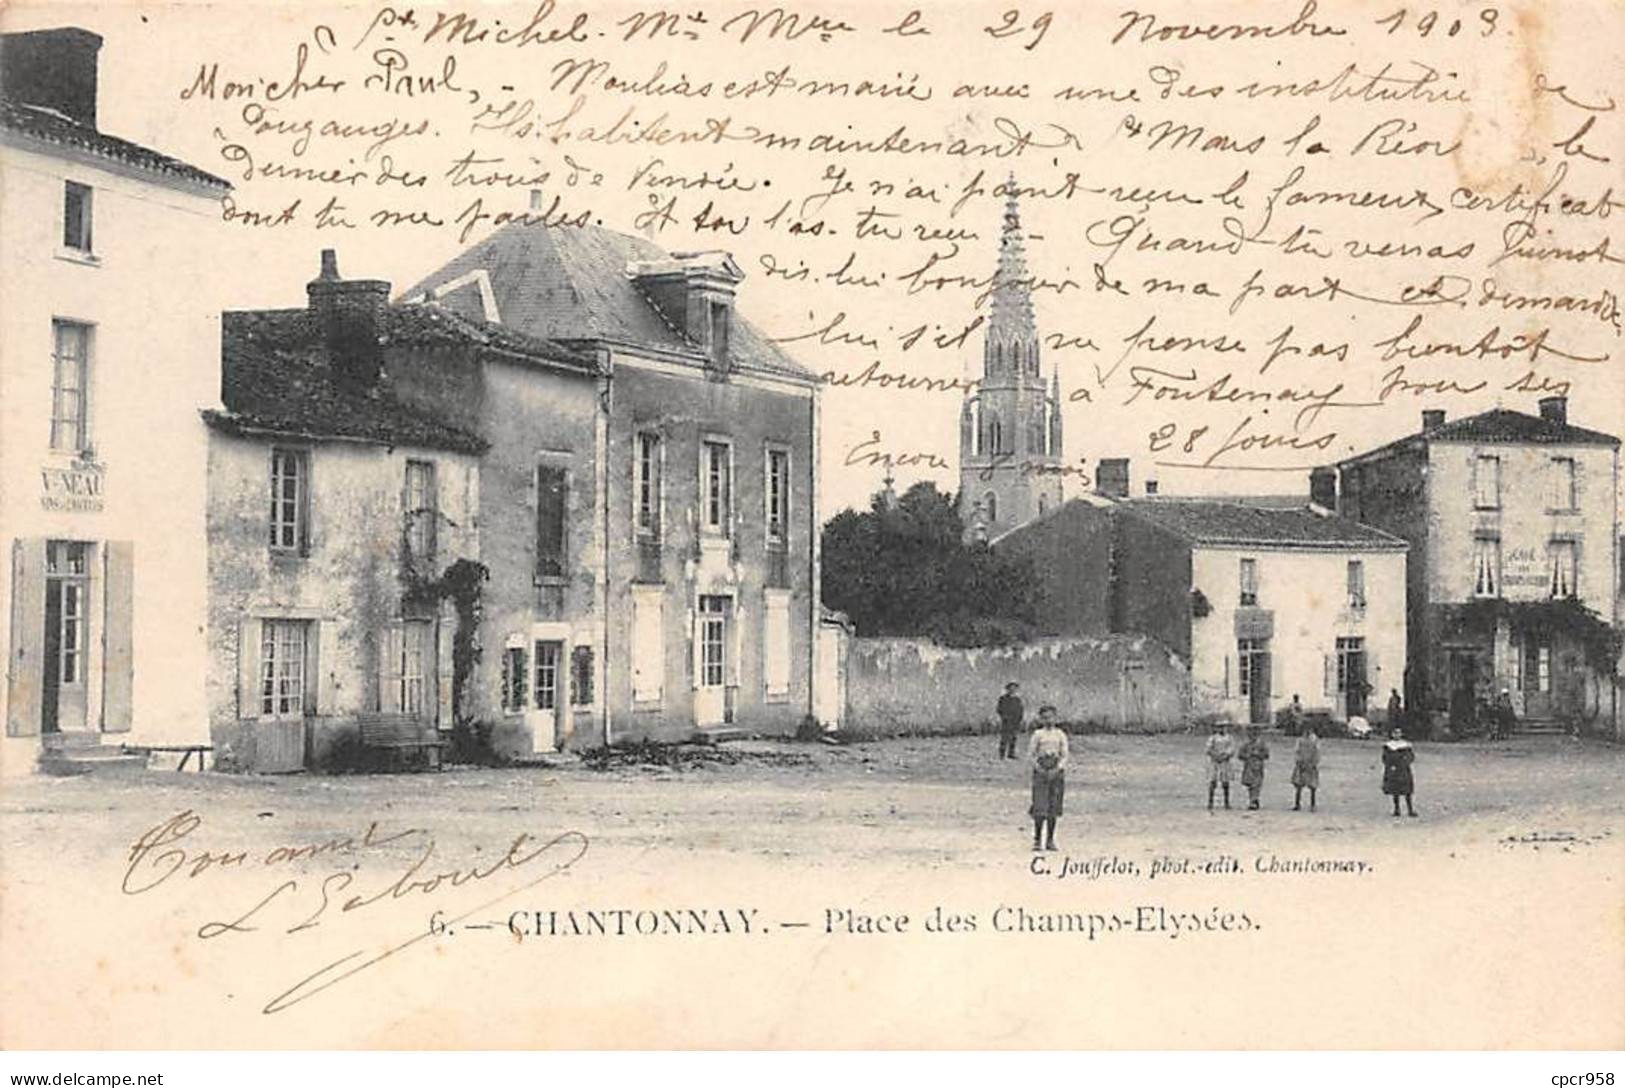 St Michel-Mt Mcu le 29 Novembre 1903
Mon cher Paul, - Moulias est marié avec une des institutrice de
Pouzauges. Ils habitent maintenant St Mars la Réor, le
dernier des trous de Vendée. Je n'ai point reçu le fameux certificat
dont tu me parles. Et toi l'as-tu reçu? - Quand tu verras Guinot
dis-lui bonjour de ma part et demande
lui s'il ne pense pas bientôt
retourner à Fontenay pour ses
28 jours.
Encore mois
V. NEAU
Ton ami
C. Jouffelot, phot.-edit. Chantonnay.
6. — CHANTONNAY. — Place des Champs-Elysées.
cpcr958